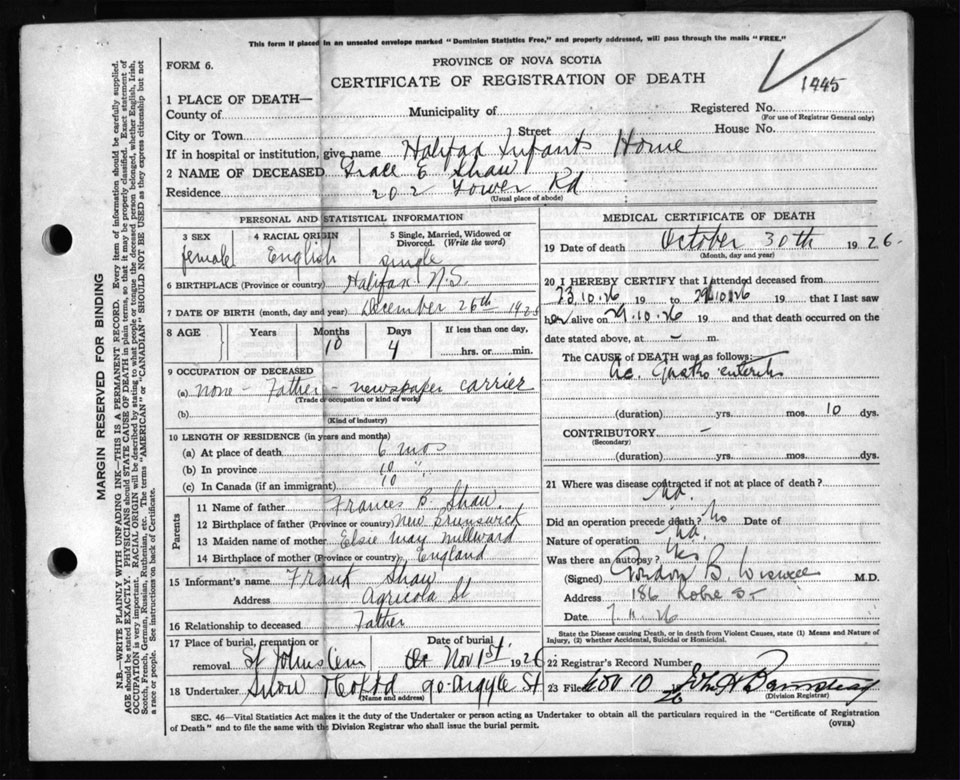 This form if placed in an unsealed envelope marked "Dominion Statistics Free," and properly addressed, will pass through the mails "FREE."
FORM 6.
PROVINCE OF NOVA SCOTIA
CERTIFICATE OF REGISTRATION OF DEATH
1445
1 PLACE OF DEATH—
County of
Municipality of
Registered No.
(For use of Registrar General only)
City or Town
Street
House No.
If in hospital or institution, give name Halifax Infants Home
2 NAME OF DECEASED Grace E Shaw
Residence 202 Tower Rd
(Usual place of abode)
PERSONAL AND STATISTICAL INFORMATION
3 SEX
4 RACIAL ORIGIN
5 Single, Married, Widowed or Divorced. (Write the word)
female English single
6 BIRTHPLACE (Province or country) Halifax N.S.
7 DATE OF BIRTH (month, day and year) December 26th 1925
8 AGE Years Months Days If less than one day,
10 4 hrs. or min.
9 OCCUPATION OF DECEASED
(a) None - Father - newspaper carrier
(Trade or occupation or kind of work)
(b)
(Kind of industry)
10 LENGTH OF RESIDENCE (in years and months)
(a) At place of death 6 mos
(b) In province 10 "
(c) In Canada (if an immigrant) 10 "
Parents
11 Name of father Frances B. Shaw
12 Birthplace of father (Province or country) New Brunswick
13 Maiden name of mother Elsie May Millward
14 Birthplace of mother (Province or country) England
15 Informant's name Frank Shaw
Address Agricola St
16 Relationship to deceased Father
17 Place of burial, cremation or removal Date of burial
St Johns Cem Nov 1st 1926
18 Undertaker Snow & Co Ltd 90 Argyle St
(Name and address)
MEDICAL CERTIFICATE OF DEATH
19 Date of death October 30th 1926
(Month, day and year)
20 I HEREBY CERTIFY that I attended deceased from
23.10.26 19 to 29.10.26 19 that I last saw
her alive on 29.10.26 19 and that death occurred on the
date stated above, at - m.
The CAUSE of DEATH was as follows:
Ac. Gastro enteritis
(duration) yrs. mos. 10 dys.
CONTRIBUTORY -
(Secondary)
(duration) yrs. mos. dys.
21 Where was disease contracted if not at place of death?
Did an operation precede death? No Date of
Nature of operation
Was there an autopsy? Yes
(Signed) Gordon B. Wiswell M.D.
Address 186 Robie St
Date
State the Disease causing Death, or in death from Violent Causes, state (1) Means and Nature of Injury, (2) whether Accidental, Suicidal or Homicidal.
22 Registrar's Record Number
23 Filed Nov 10 26
(Division Registrar)
SEC. 46—Vital Statistics Act makes it the duty of the Undertaker or person acting as Undertaker to obtain all the particulars required in the "Certificate of Registration
of Death" and to file the same with the Division Registrar who shall issue the burial permit.
(OVER)
MARGIN RESERVED FOR BINDING
N.B.—WRITE PLAINLY WITH UNFADING INK—THIS IS A PERMANENT RECORD. Every item of information should be carefully supplied.
AGE should be stated EXACTLY. PHYSICIANS should STATE CAUSE OF DEATH in plain terms, so that it may be properly classified. Exact statement of
OCCUPATION is very important. RACIAL ORIGIN will be described by stating to what people or tongue the deceased person belonged, whether English, Irish,
Scotch, French, German, Russian, Ruthenian, etc. The terms "AMERICAN" or "CANADIAN" SHOULD NOT BE USED as they express citizenship but not
a race or people. See instructions on back of Certificate.